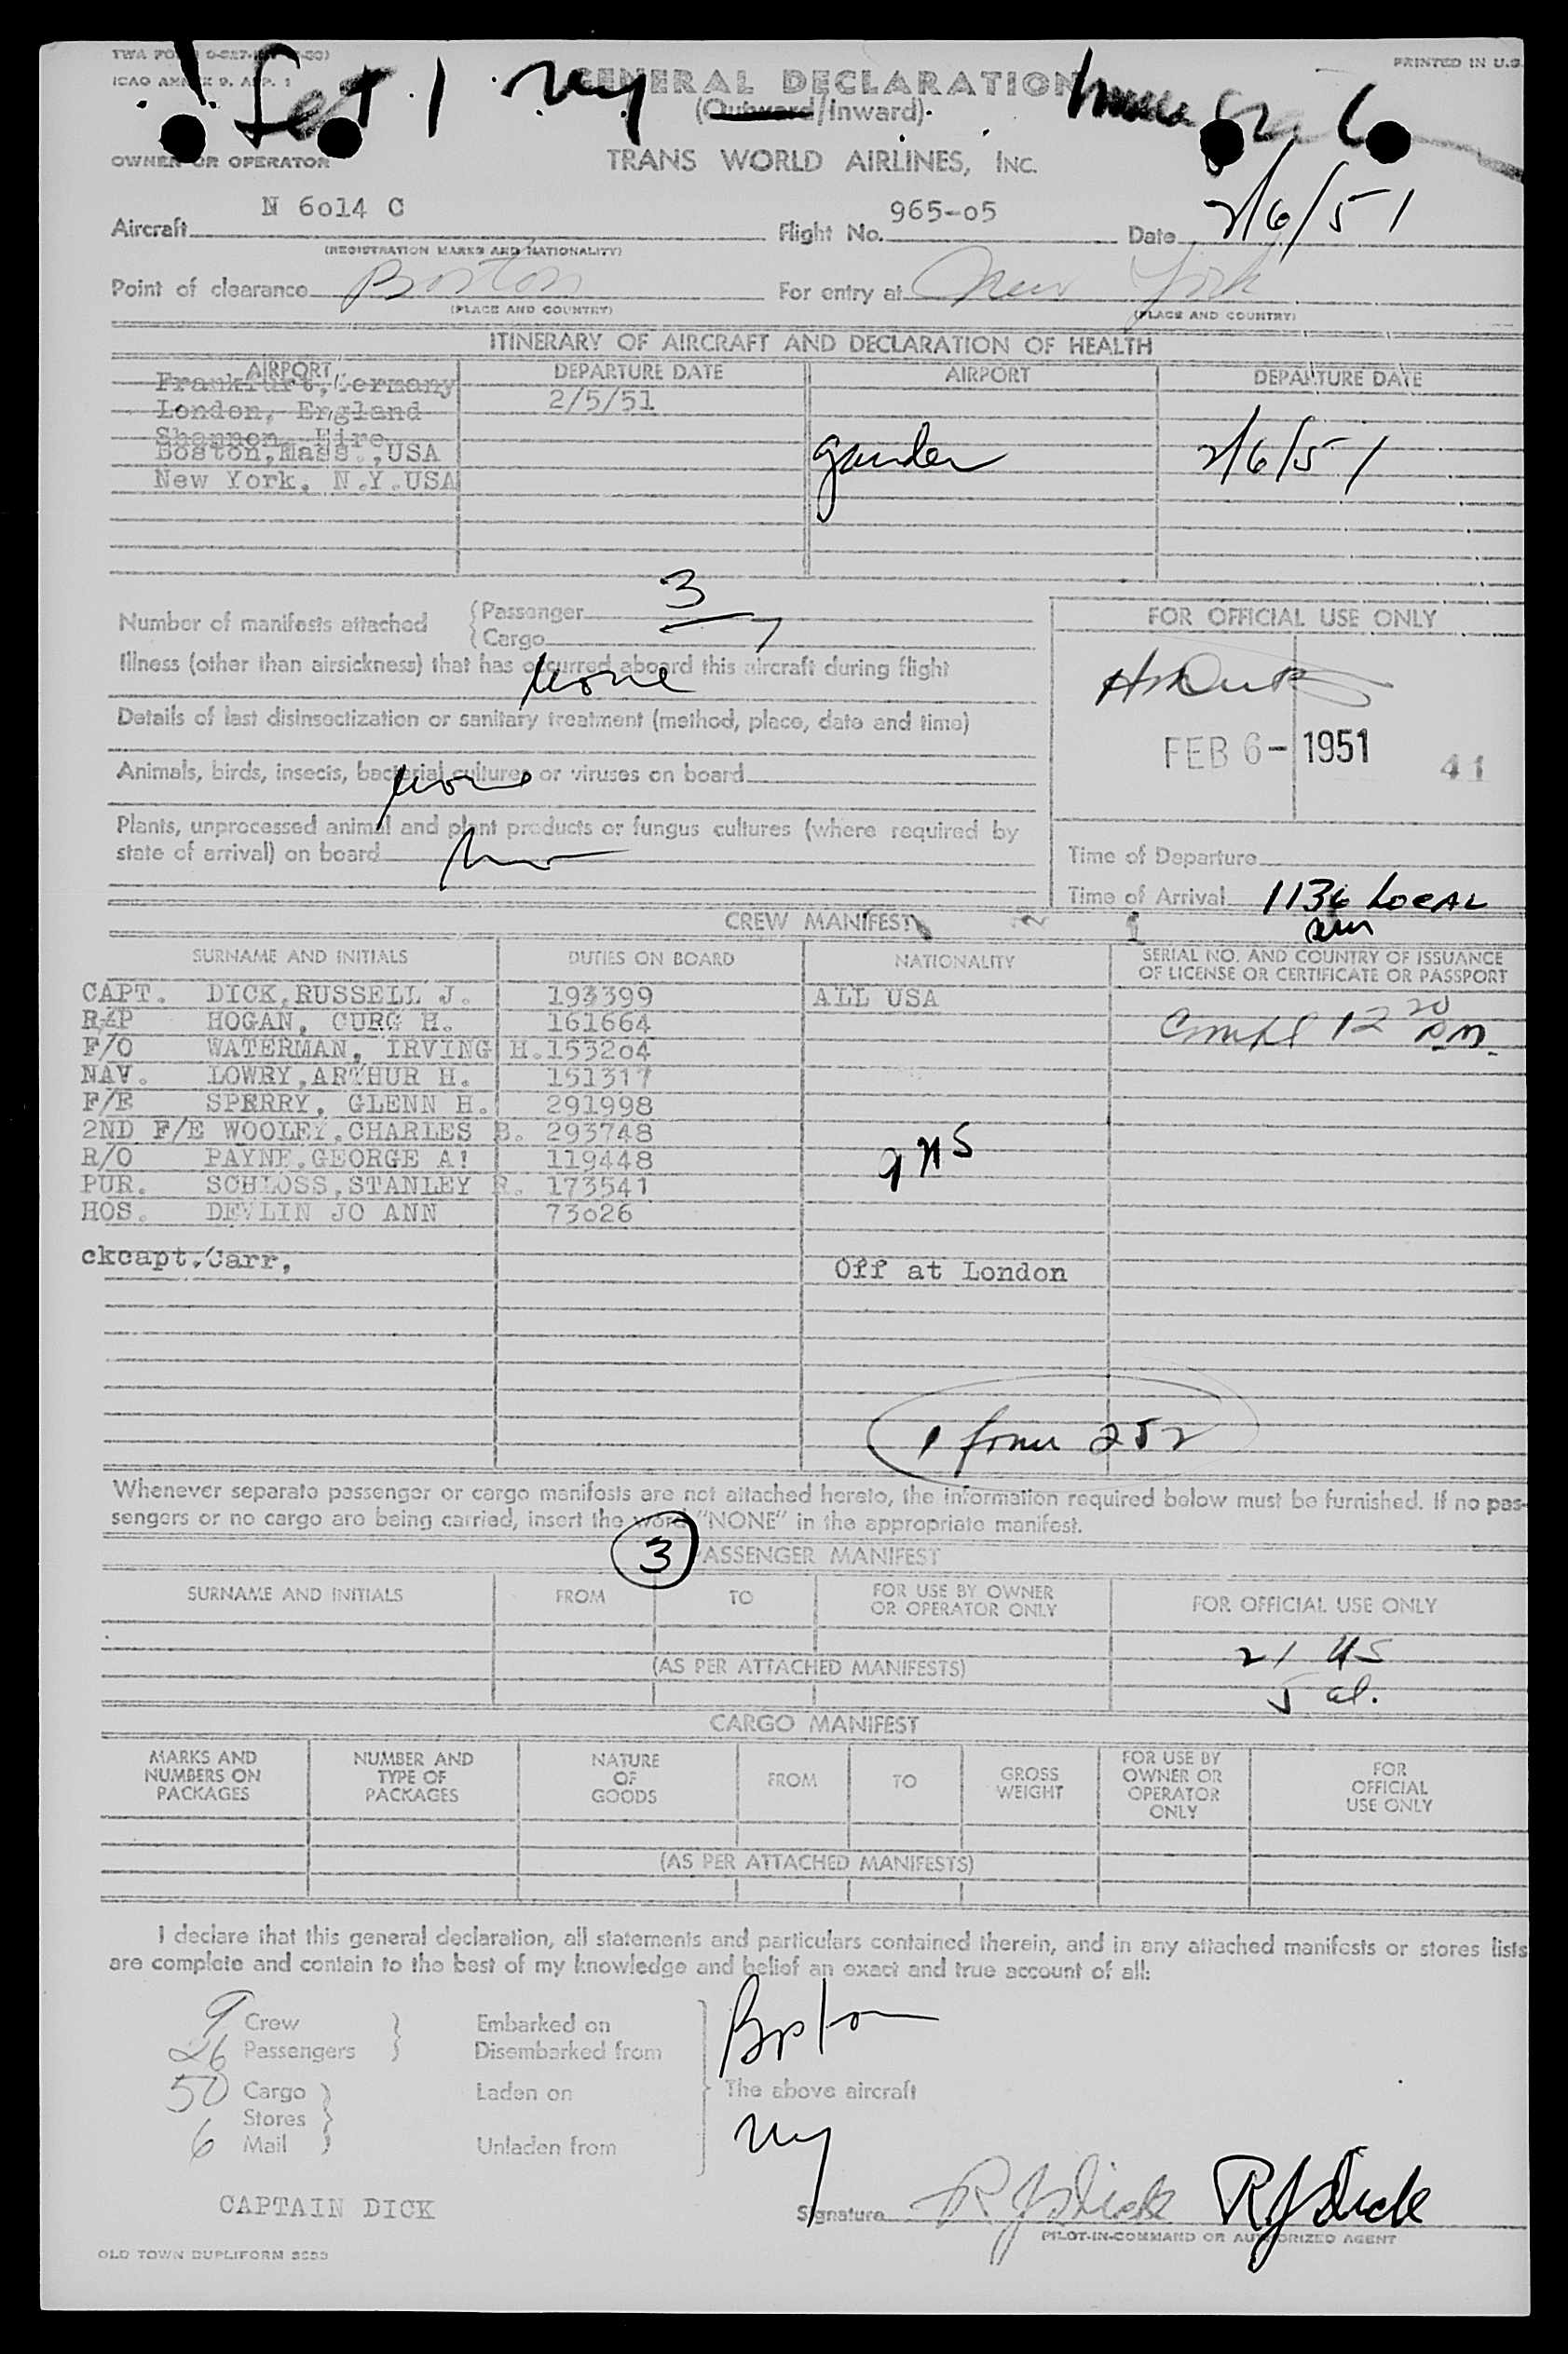 TWA FO
ICAO ANNEX 9, APP. 1
PRINTED IN U.S.
GENERAL DECLARATION
(Outward/Inward)
OWNER OR OPERATOR TRANS WORLD AIRLINES, INC.
Aircraft N 6014 C Flight No. 965-05 Date 2/6/51
(REGISTRATION MARKS AND NATIONALITY)
Point of clearance Boston For entry at New York
(PLACE AND COUNTRY) (PLACE AND COUNTRY)
ITINERARY OF AIRCRAFT AND DECLARATION OF HEALTH
AIRPORT DEPARTURE DATE AIRPORT DEPARTURE DATE
Frankfurt, Germany
London, England 2/5/51
Shannon, Eire
Boston, Mass., USA gander 2/6/51
New York, N.Y.USA
Number of manifests attached Passenger 3
Cargo 7
Illness (other than airsickness) that has occurred aboard this aircraft during flight
None
Details of last disinsectization or sanitary treatment (method, place, date and time)
Animals, birds, insects, bacterial cultures or viruses on board
None
Plants, unprocessed animal and plant products or fungus cultures (where required by
state of arrival) on board
FOR OFFICIAL USE ONLY
FEB 6- 1951 41
Time of Departure
Time of Arrival 1136 LOCAL
am
CREW MANIFEST
SURNAME AND INITIALS DUTIES ON BOARD NATIONALITY SERIAL NO. AND COUNTRY OF ISSUANCE
OF LICENSE OR CERTIFICATE OR PASSPORT
CAPT. DICK,RUSSELL J. 193399 ALL USA
R/P HOGAN, CURG H. 161664 Compl 12 20 P.M.
F/O WATERMAN, IRVING H.153204
NAV. LOWRY,ARTHUR H. 151317
F/E SPERRY, GLENN H. 291998
2ND F/E WOOLEY,CHARLES B. 293748
R/O PAYNE,GEORGE A! 119448 9 US
PUR. SCHLOSS,STANLEY R. 173541
HOS. DEVLIN JO ANN 73026
ckcapt.Carr, Off at London
1 form 252
Whenever separate passenger or cargo manifests are not attached hereto, the information required below must be furnished. If no pas-
sengers or no cargo are being carried, insert the word "NONE" in the appropriate manifest.
3 PASSENGER MANIFEST
SURNAME AND INITIALS FROM TO FOR USE BY OWNER
OR OPERATOR ONLY FOR OFFICIAL USE ONLY
21 US
(AS PER ATTACHED MANIFESTS)
5 al.
CARGO MANIFEST
MARKS AND
NUMBERS ON
PACKAGES
NUMBER AND
TYPE OF
PACKAGES
NATURE
OF
GOODS
FROM
TO
GROSS
WEIGHT
FOR USE BY
OWNER OR
OPERATOR
ONLY
FOR
OFFICIAL
USE ONLY
(AS PER ATTACHED MANIFESTS)
I declare that this general declaration, all statements and particulars contained therein, and in any attached manifests or stores lists
are complete and contain to the best of my knowledge and belief an exact and true account of all:
9 Crew Embarked on Boston
26 Passengers Disembarked from
50 Cargo Laden on The above aircraft
Stores
6 Mail Unladen from NY
CAPTAIN DICK Signature RJ Dick RJ Dick
PILOT-IN-COMMAND OR AUTHORIZED AGENT
OLD TOWN DUPLIFORM